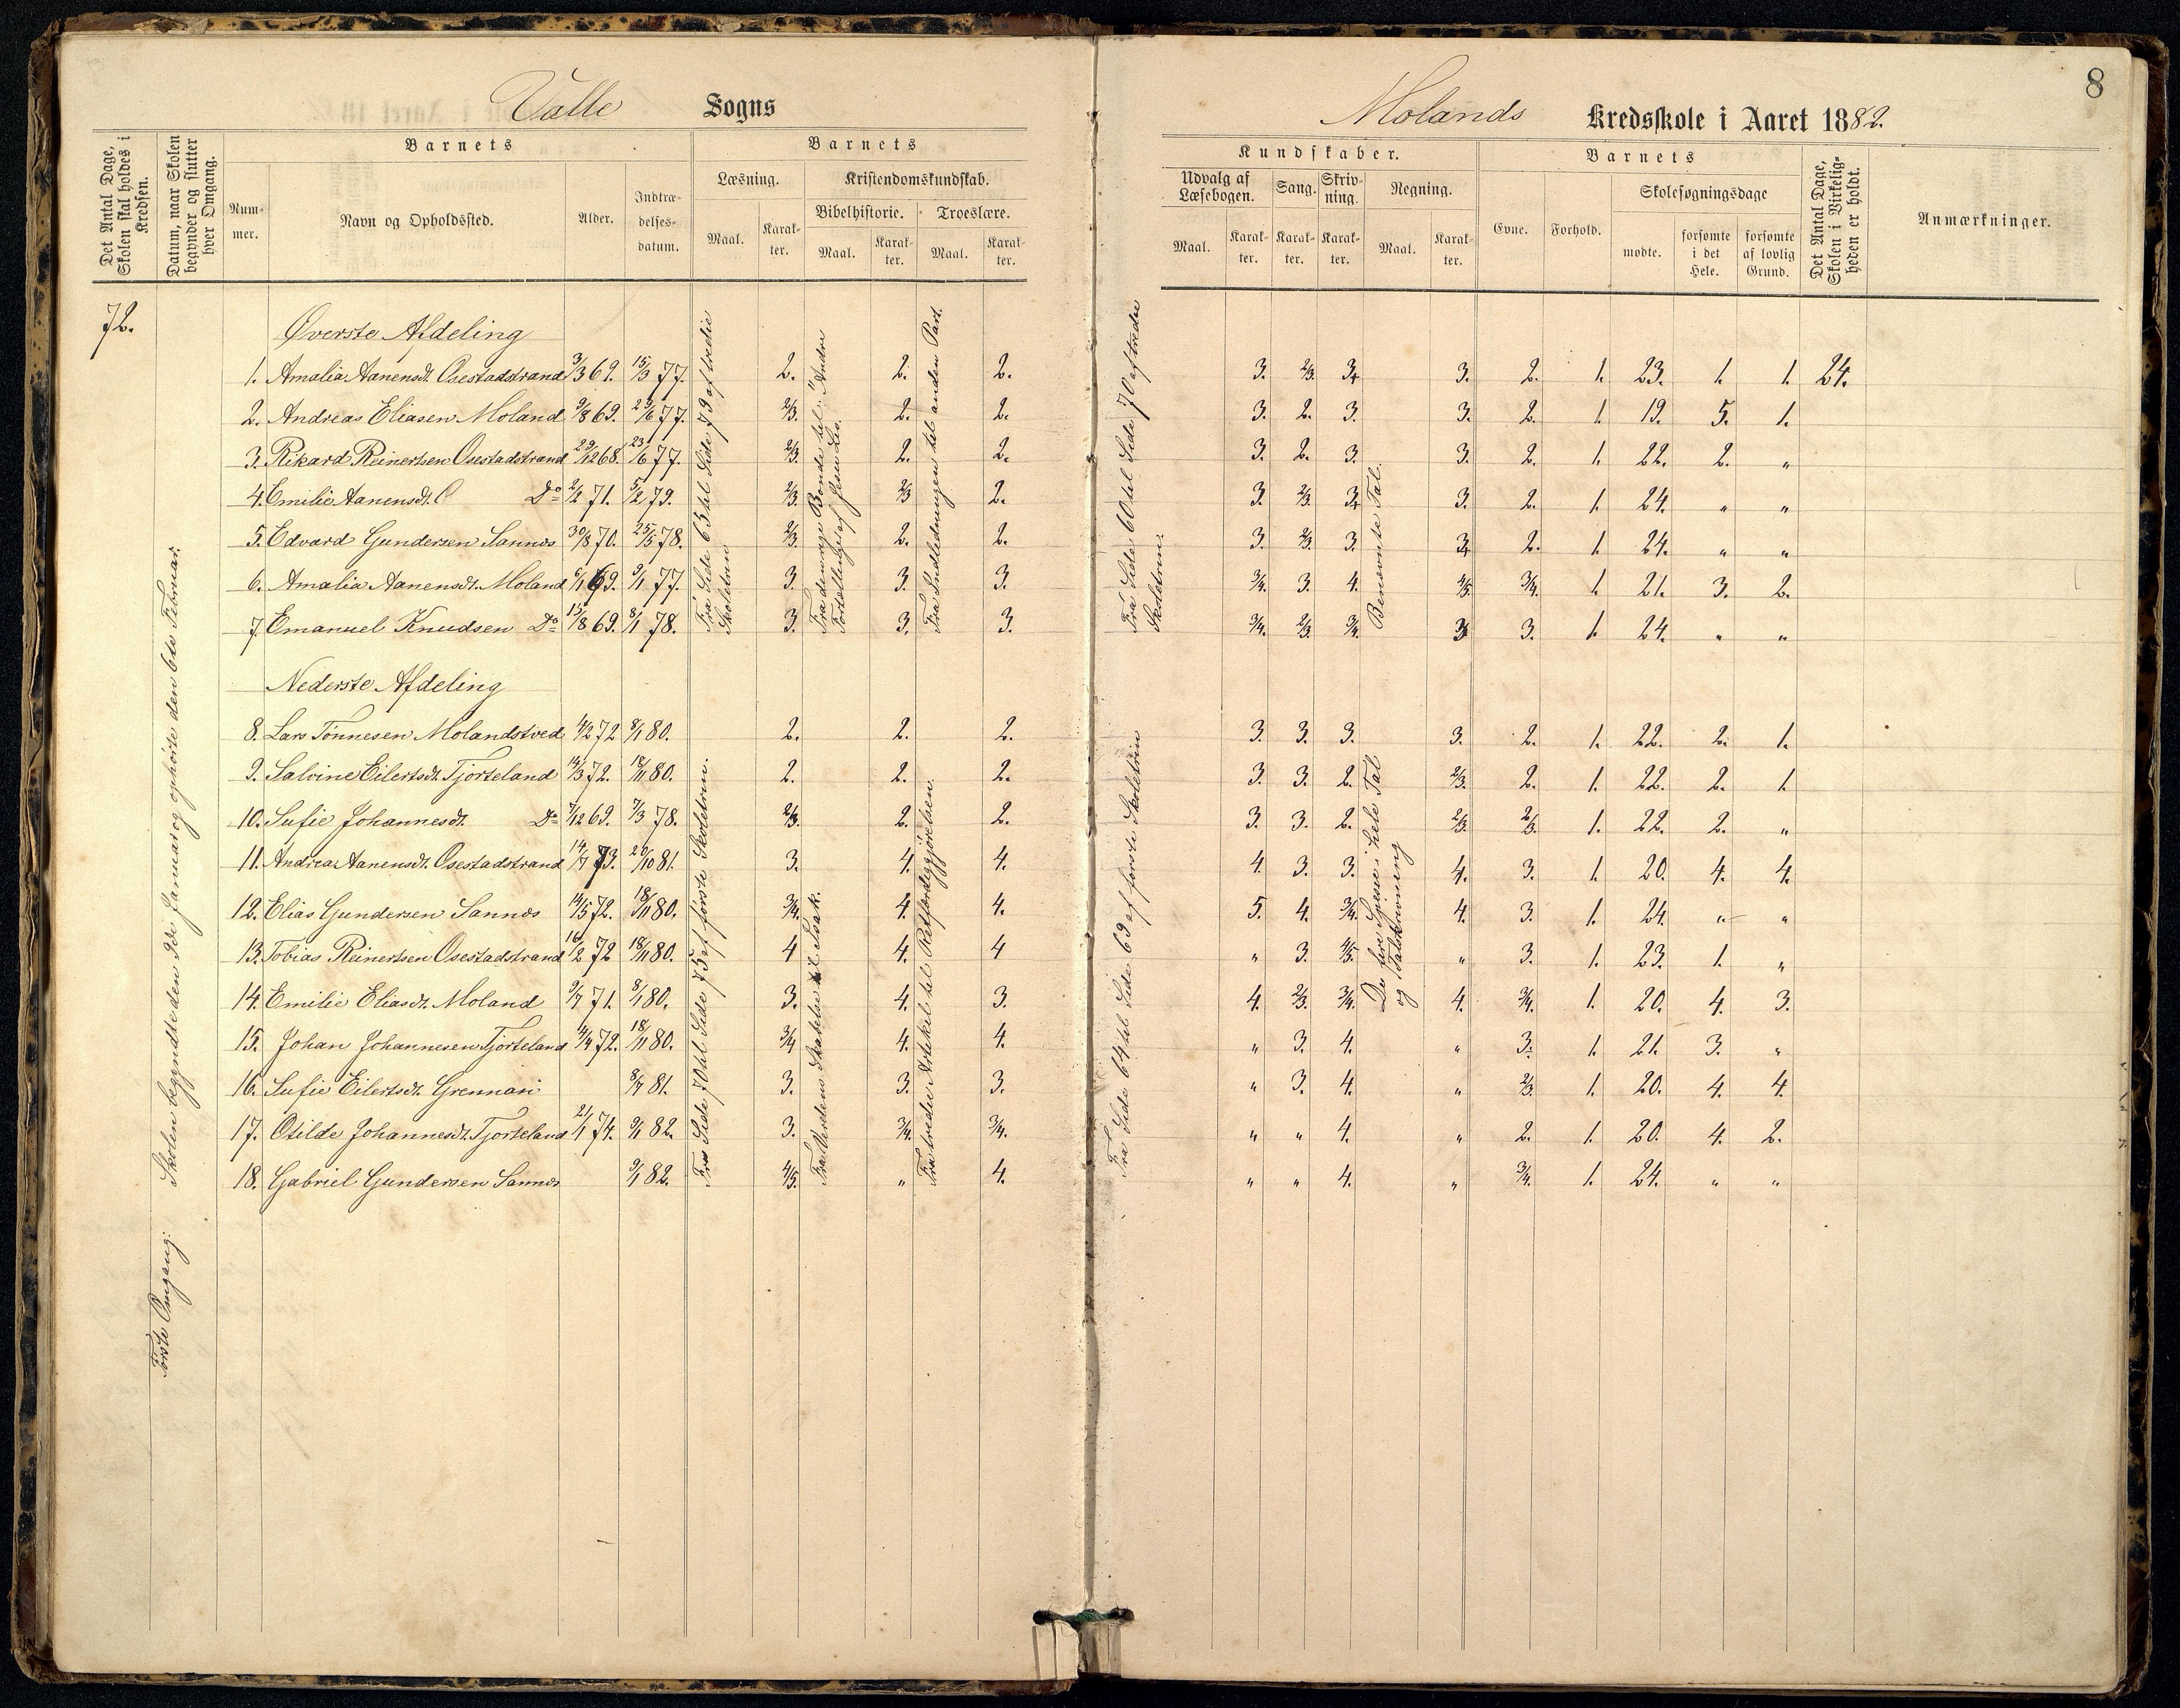 8
Valle Sogns
Molands Kredsskole i Aaret 1882.
Det Antal Dage, Skolen skal holdes i Kredsen.
Datum, naar Skolen begynder og slutter hver Omgang.
Barnets
Nummer.
Navn og Opholdssted.
Alder.
Indtrædelsesdatum.
Barnets
Læsning.
Maal.
Karakter.
Kristendomskundskab.
Bibelhistorie.
Maal.
Karakter.
Troeslære.
Maal.
Karakter.
Kundskaber.
Udvalg af Læsebogen.
Maal.
Karakter.
Sang.
Karakter.
Skrivning.
Karakter.
Regning.
Maal.
Karakter.
Barnets
Evne.
Forhold.
Skolesøgningsdage
mødte.
forsømte i det Hele.
forsømte af lovlig Grund.
Det Antal Dage, Skolen i Virkeligheden er holdt.
Anmærkninger.
72.
Første Omgang: Skolen begyndte den 9de Januar og ophørte den 6te Februar.
Øverste Afdeling
Fra Side 65 til Side 79 af tredie Skoletrin
Fra denunge Bonde til "Andre Fortællinger af Jesu Liv.
Fra Indledningen til anden Part.
Fra Side 60 til Side 70 af tredie Skoletrin.
Benævnte Tal.
1. Amalia Aanensdt. Osestadstrand 3/3 69. 15/3 77. 2. 2. 2. 3. 2/3. 3+ 3. 2. 1. 23. 1. 1. 24.
2. Andreas Eliasen Moland 9/8 69. 29/6 77. 2/3. 2. 2. 3. 2. 3. 3. 2. 1. 19. 5. 1.
3. Rikard Reinertsen Osestadstrand 29/12 68. 23/6 77. 2/3. 2. 2. 3. 2. 3. 3. 2. 1. 22. 2. "
4. Emilie Aanensdt. Do 2/2 71. 5/2 79. 2/3. 2/3 2. 3. 2/3. 3+ 3. 2. 1. 24. " "
5. Edvard Gundersen Sannes 30/8 70. 25/5 78. 2/3. 2. 2. 3. 2/3. 3. 3+ 2. 1. 24. " "
6. Amalia Aanensdt. Moland 6/1 69. 9/1 77. 3. 3. 3. 3/4. 3. 4. 4/5. 3/4. 1. 21. 3. 2.
7. Emanuel Knudsen Do 15/8 69. 8/1 78. 3. 3. 3. 3/4. 2/3. 3/4. 3. 3. 1. 24. " "
Nederste Afdeling
Fra Side 70 til Side 75 af første Skoletrin.
Fra Verdens Skabelse til Isak.
Fra tredie Artikel til Retfærdiggjørelsen.
Fra Side 64 til Side 69 af første Skoletrin
De fire Spesie i hele Tal og Talskrivning
8. Lars Tønnesen Molandstved 4/2 72 8/1 80. 2. 2. 2. 3. 3. 3. 3. 2. 1. 22. 2. 1.
9. Salvine Eilertsdt. Tjorteland 14/3 72. 18/11 80. 2. 2. 2. 3. 3. 2. 2/3. 2. 1. 22. 2. 1.
10. Sufie Johannesdt. Do 7/12 69. 7/3 78. 2/3. 2. 2. 3. 3. 2. 2/3. 2/3. 1. 22. 2. "
11. Andrea Aanensdt. Osestadstrand 14/7 73. 20/10 81. 3. 4. 4. 4. 3. 3. 4. 3. 1. 20. 4. 4.
12. Elias Gundersen Sannes 14/5 72. 18/11 80. 3/4. 4. 4. 5. 4. 3/4. 4. 3. 1. 24. " "
13. Tobias Reinertsen Osestadstrand 16/2 72 18/11 80. 4 4. 4 " 3. 4/5. " 3. 1. 23. 1. "
14. Emilie Eliasdt. Moland 9/7 71. 8/1 80. 3. 4. 3. 4. 2/3. 3/4. 4. 3/4. 1. 20. 4. 3.
15. Johan Johannesen Tjorteland 4/4 72. 18/11 80. 3/4 4. 4. " 3. 4. " 3. 1. 21. 3. "
16. Sufie Eilertsdt. Grennari 8/7 81. 3. 3. 3. " 3. 4. " 2/3. 1. 20. 4. 4.
17. Otilde Johannesdt. Tjorteland 21/1 74. 9/1 82. 3. 3/4. 3/4. " " 4. " 2. 1. 20. 4. 2.
18. Gabriel Gundersen Sannes 9/1 82. 4/5. " 4. " " 4. " 3/4. 1. 24. " "